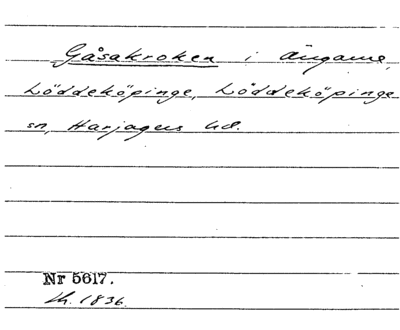 Gåsakroken i ängarne,
Löddeköpinge, Löddeköpinge
sn, Harjagers hd.
Nr 5617.
th. 1836